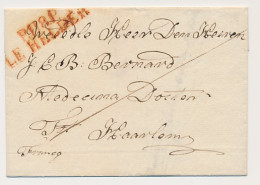 P.79.P.
LE HELDER
Heer Den Heeren
J. E. B. Bernard
Medecina Doctor
Haarlem
Franco